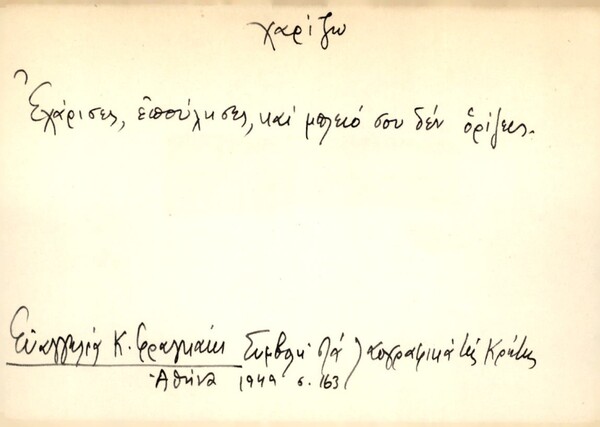 χαρίζω
Ἐχάρισες, ἐπούλησες, καί μπλειό σου δέν ὁρίζεις.
Εὐαγγελία Κ. Φραγκάκι Συμβολή στά Λαογραφικά τῆς Κρήτης
Ἀθήνα 1949 σ. 163